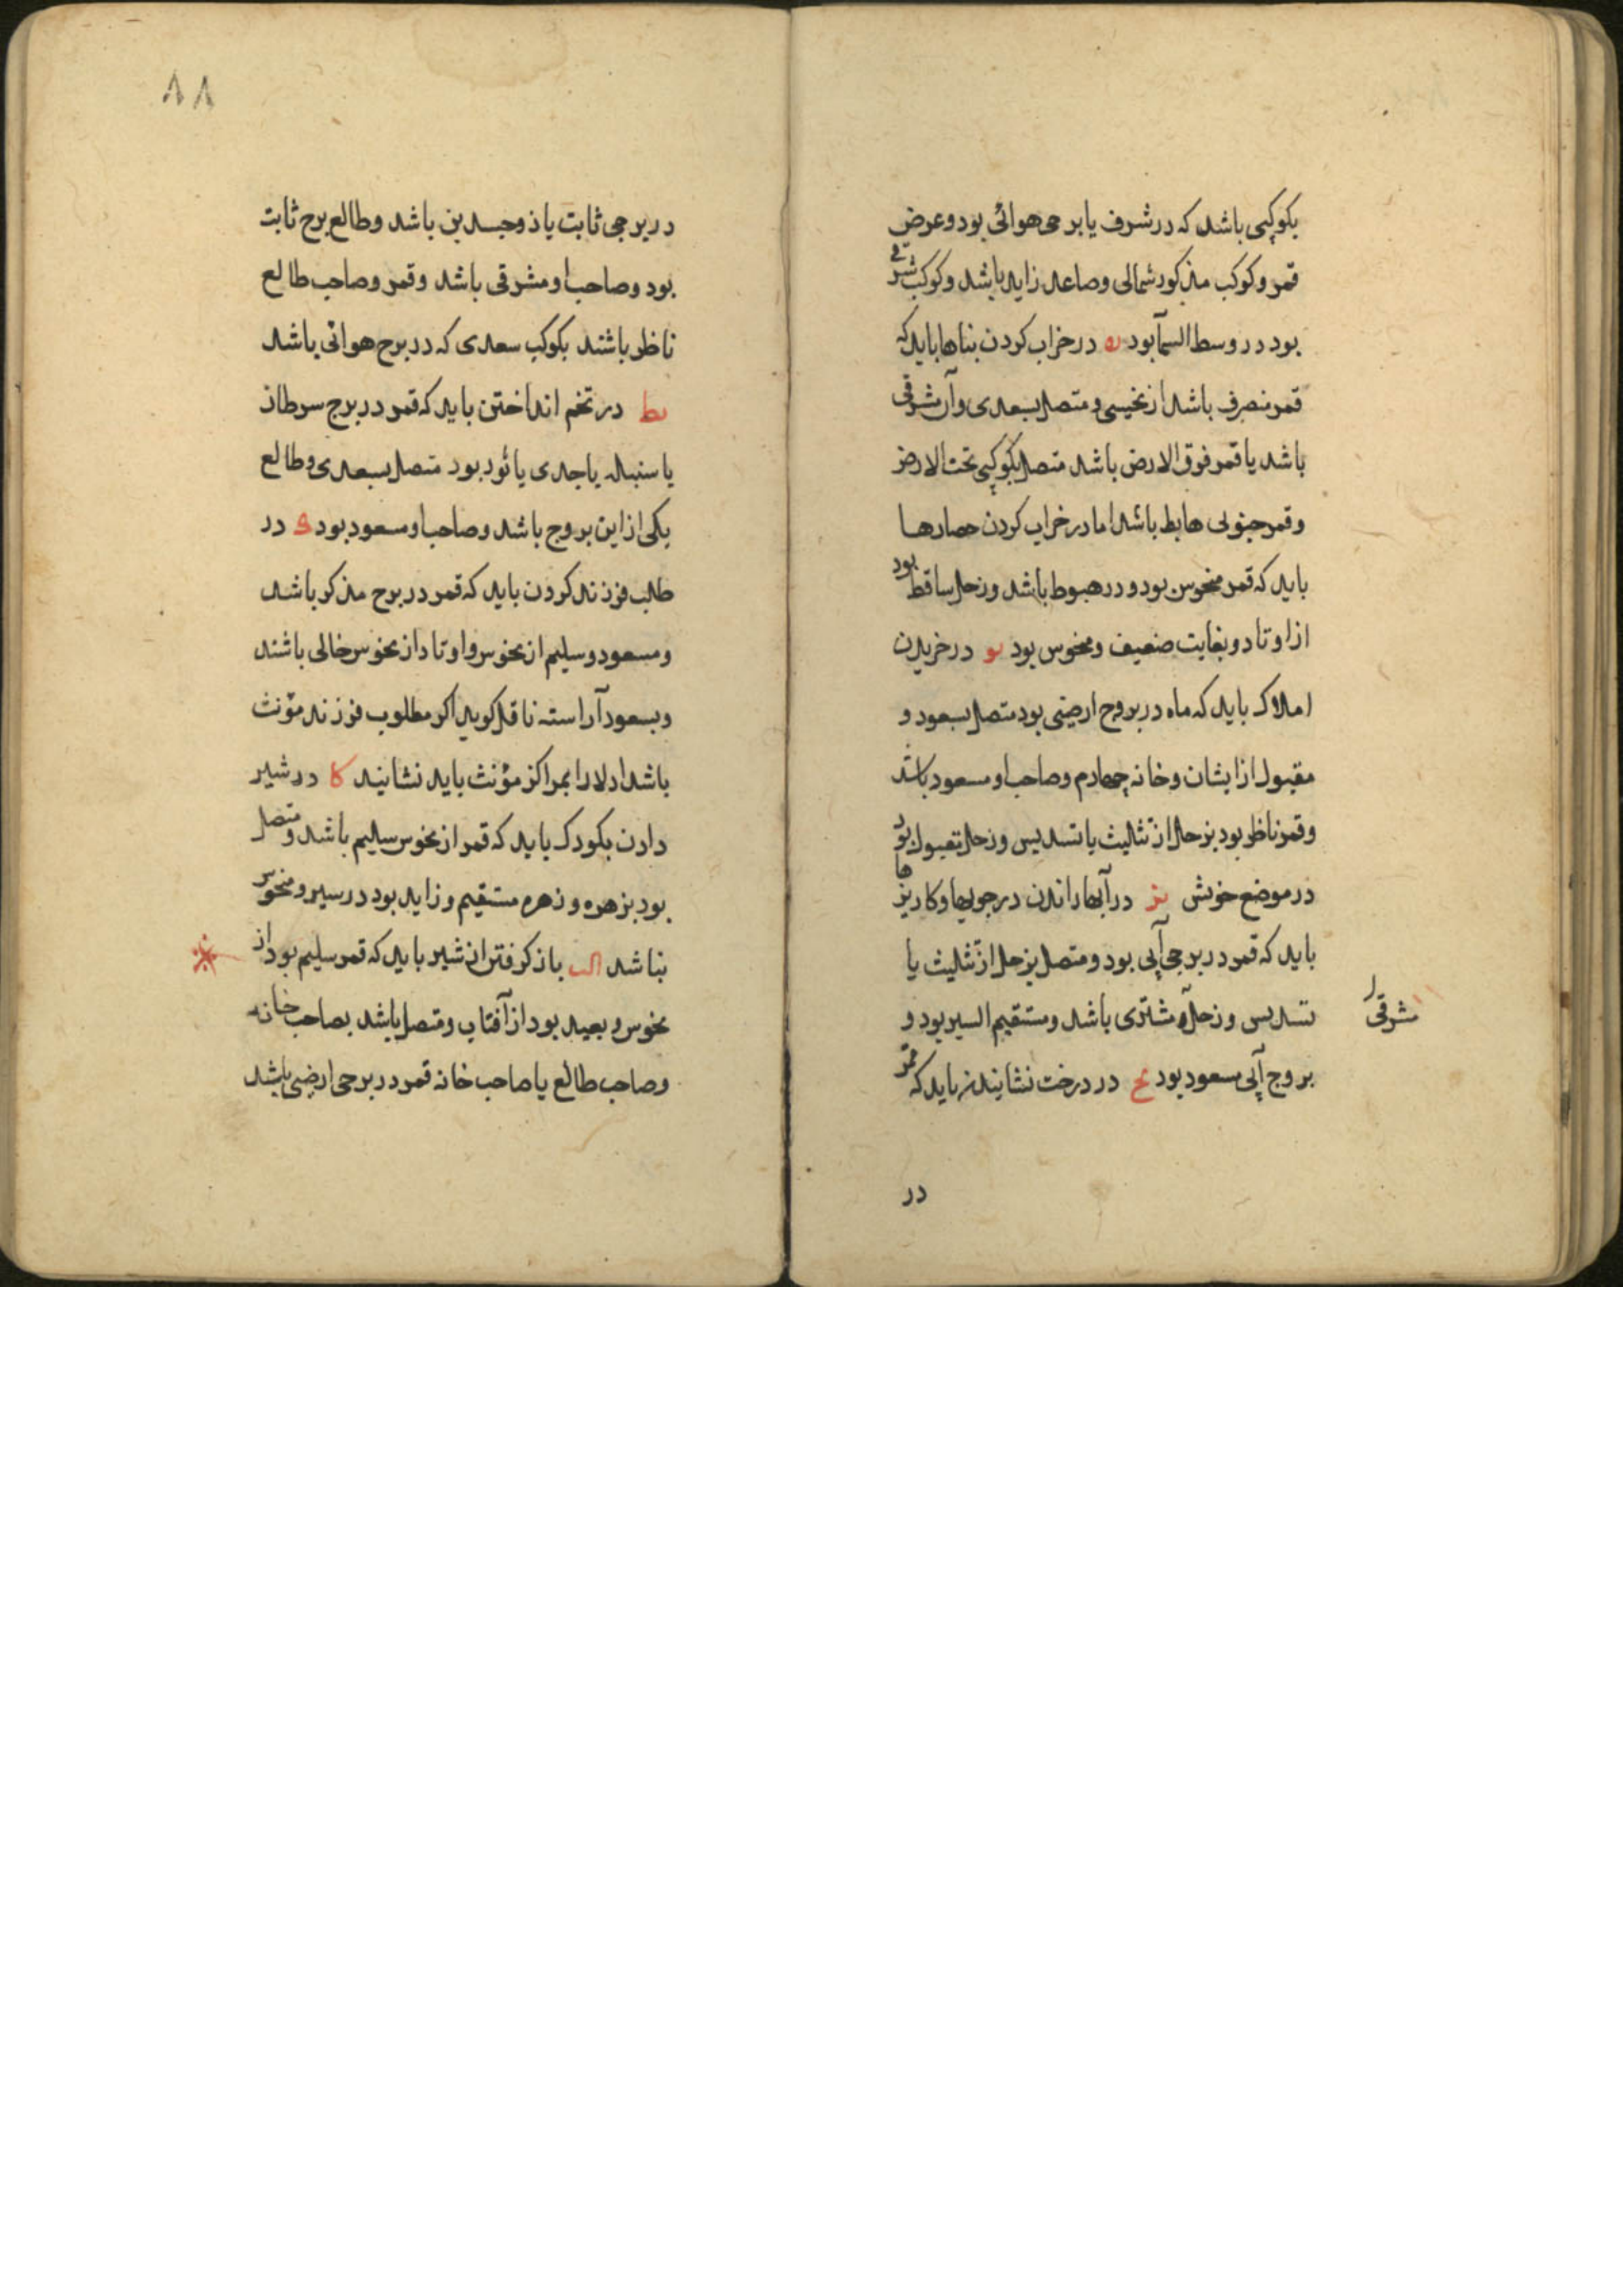 بکوکبی باشد که در شرف یا برجی هوائی بود و عرض
قمر و کوکب مذکور شمالی و صاعد زاید باشد و کوکب شرقی
بود در وسط السمآ بود یه در خراب کردن بناها باید که
قمر منصرف باشد از نحیسی و متصل بسعدی و آن مشرقی
باشد یا قمر فوق الارض باشد متصل بکوکبی تحت الارض
و قمر جنوبی هابط باشد اما در خراب کردن حصارها
باید که قمر منحوس بود و در هبوط باشد و زحل ساقط بود
از اوتاد و بغایت ضعیف و منحوس بود یو در خریدن
املاک باید که ماه در بروج ارضی بود متصل بسعود و
مقبول از ایشان و خانه چهارم و صاحب او مسعود باشد
و قمر ناظر بود بزحل از تثلیث یا تسدیس و زحل مقبول بود
در موضع خویش یز در آبها راندن در جویها و کاریزها
باید که قمر در برجی آبی بود و متصل بزحل از تثلیث یا
تسدیس و زحل و مشتری باشد و مستقیم السیر بود و
مشرقی
بروج آبی مسعود بود یح در درخت نشانیدن باید که قمر
در
٨٨
در برجی ثابت یا ذوجسدین باشد و طالع برج ثابت
بود و صاحب او مشرقی باشد و قمر و صاحب طالع
ناظر باشند بکوکب سعدی که در برج هوائی باشد
یط در تخم انداختن باید که قمر در برج سرطان
یا سنبله یا جدی یا ثور بود متصل بسعدی و طالع
یکی از این بروج باشد و صاحب او مسعود بود ک در
طلب فرزند کردن باید که قمر در برج مذکر باشد
و مسعود و سلیم از نحوس و اوتاد از نحوس خالی باشند
و بسعود آراسته ناقل کوید اکر مطلوب فرزند مؤنث
باشد ادلا را بمراکز مؤنث باید نشانید کا در شیر
دادن بکودک باید که قمر از نحوس سلیم باشد و متصل
بود بزهره و زهره مستقیم و زاید بود در سیر و منحوس
نباشد کب باز کرفتن از شیر باید که قمر سلیم بود از
نحوس و بعید بود از آفتاب و متصل باشد بصاحب خانه
و صاحب طالع یا صاحب خانه قمر در برجی ارضی باشد